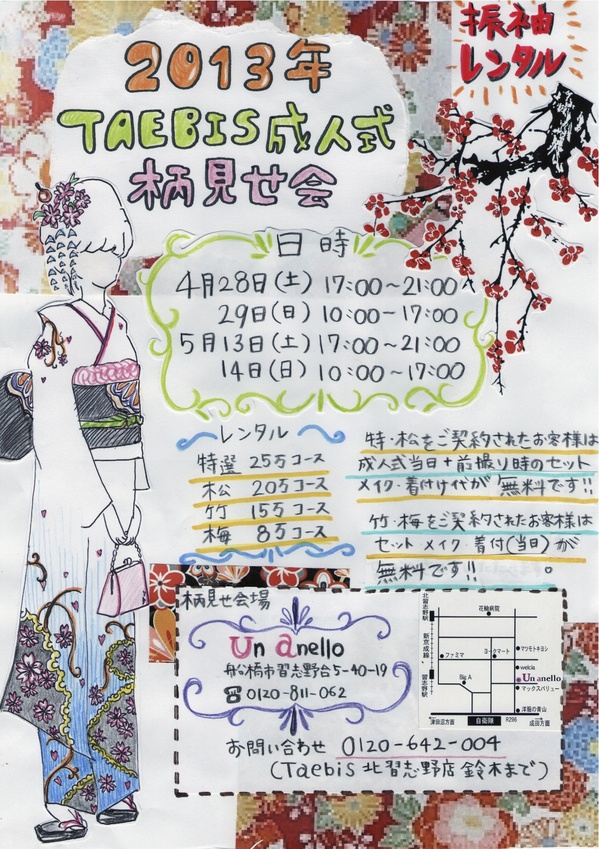 振袖
レンタル
2013年
TAEBIS成人式
柄見せ会
日時
4月28日(土) 17:00〜21:00
29日(日) 10:00〜17:00
5月13日(土) 17:00〜21:00
14日(日) 10:00〜17:00
レンタル
特選 25万コース
松 20万コース
竹 15万コース
梅 8万コース
特・松をご契約されたお客様は
成人式当日+前撮り時のセット
メイク・着付け代が無料です!!
竹・梅をご契約されたお客様は
セット メイク・着付(当日)が
無料です!!
柄見せ会場
Un anello
船橋市習志野台5-40-19
☎0120-811-062
北習志野駅
新京成線
習志野駅
花輪病院
ファミマ
ヨークマート
マツモトキヨシ
welcia
Un anello
Big A
マックスバリュー
洋服の青山
津田沼方面
自衛隊
R296
成田方面
お問い合わせ 0120-642-004
(Taebis 北習志野店 鈴木まで)